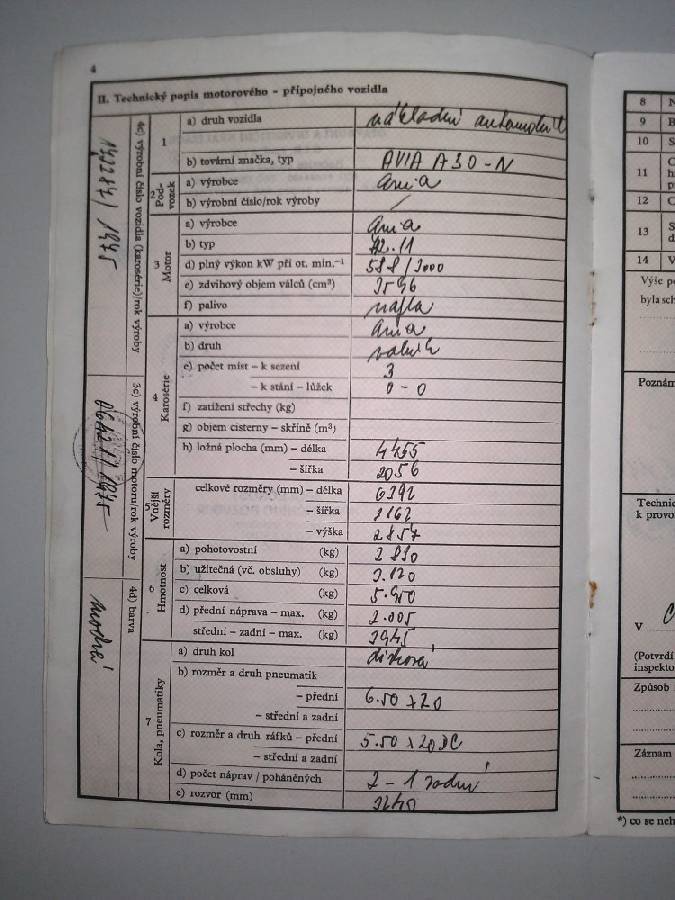 4
II. Technický popis motorového – přípojného vozidla
1 a) druh vozidla nákladní automobil
b) tovární značka, typ AVIA A30-N
2 Pod-vozek a) výrobce Avia
b) výrobní číslo/rok výroby /
3 Motor a) výrobce Avia
b) typ 712.11
d) plný výkon kW při ot. min.⁻¹ 588/3000
e) zdvihový objem válců (cm³) 3596
f) palivo nafta
4 Karosérie a) výrobce Avia
b) druh valník
c) počet míst – k sezení 3
– k stání – lůžek 0 - 0
f) zatížení střechy (kg)
g) objem cisterny – skříně (m³)
h) ložná plocha (mm) – délka
– šířka 2056
5 Vnější rozměry celkové rozměry (mm) – délka
– šířka
– výška 2857
6 Hmotnost a) pohotovostní (kg)
b) užitečná (vč. obsluhy) (kg) 3.120
c) celková (kg)
d) přední náprava – max. (kg) 2.005
střední – zadní – max. (kg) 3945
7 Kola, pneumatiky a) druh kol disková
b) rozměr a druh pneumatik
– přední 6.50 x 20
– střední a zadní
c) rozměr a druh ráfků – přední 5.50 x 20 DC
– střední a zadní
d) počet náprav / poháněných 2 - 1 zadní
e) rozvor (mm)
4c) výrobní číslo vozidla (karosérie)/rok výroby
3c) výrobní číslo motoru/rok výroby
4d) barva
modrá
8
9
10
11
12
13
14
Výše po
byla sch
Poznám
Technic
k provo
V
(Potvrdí
inspekto
Způsob
Záznam
*) co se neh